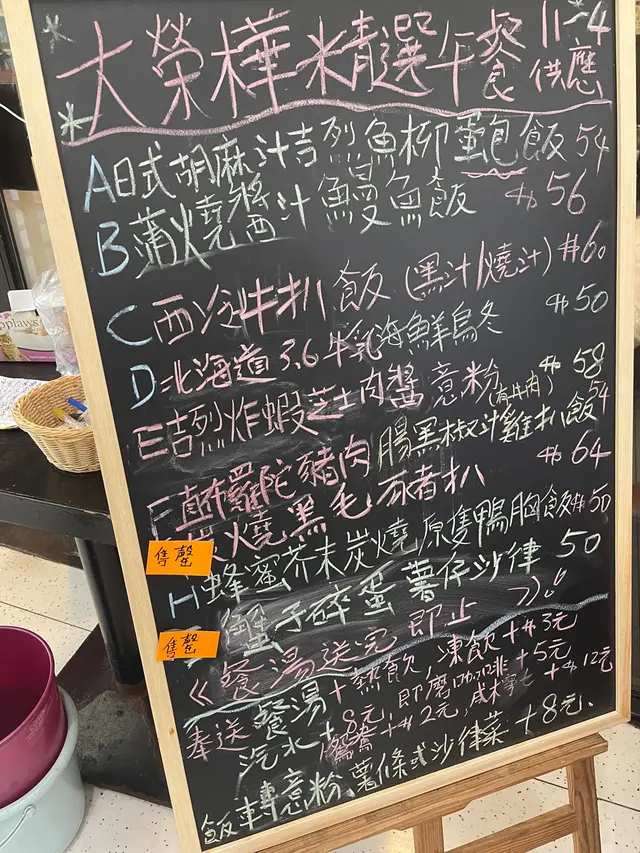 大榮樺米精選午餐 11-4 供應
A 日式胡麻汁吉列魚柳蛋包飯 54
B 蒲燒醬汁鰻魚飯 #56
C 西冷牛扒飯 (黑汁/燒汁) #60
D 北海道3.6牛乳海鮮烏冬 #50
E 吉列炸蝦芝士肉醬意粉 (有牛肉) #58
F 羅陀豬肉腸黑椒汁雞扒飯 54
炭燒黑毛豬扒 #64
售罄
H 蜂蜜芥末炭燒原隻鴨胸飯 #50
蟹子碎蛋薯仔沙律 50
售罄
《餐湯送完即止》
奉送餐湯 + 熱飲, 凍飲 + #3元
汽水 + 8元 即磨咖啡 + 5元
鴛鴦 + #2元, + #12元
飯轉意粉、薯條或沙律菜 + 8元.
oplaws